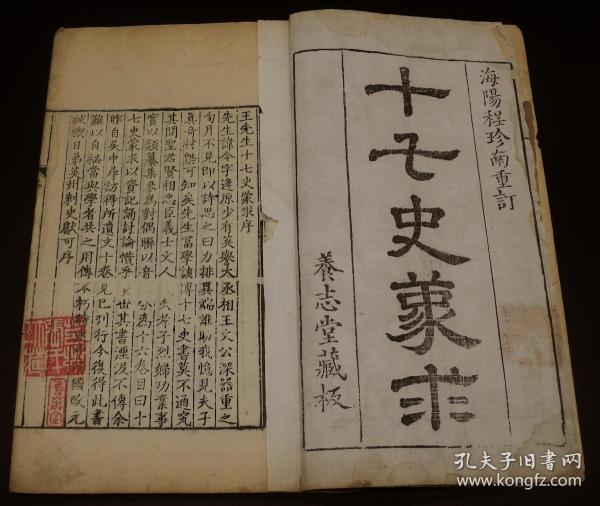 海陽程珍南重訂
十七史蒙求
養志堂藏板
王先生十七史蒙求序
先生諱令字逢原少有英譽大丞相王文公深器重之
旬月不見即以詩思之曰力排異端誰助我憶見夫子
真奇材槩可知矣先生學該博十七史書莫不通究
其間聖君賢相忠臣義士文人孝子烈婦功業事
實以類纂集參為對偶聯以音分為十六卷目曰十
七史蒙求以資記誦討論惜乎世其書湮汲不傳余
昨自吳中尋訪得所遺文十卷見已刋行今復得此書
難以自祕當與學者共之用傳不朽時國改元
日弟英州刺史獻可序
孔夫子旧书网
www.kongfz.com